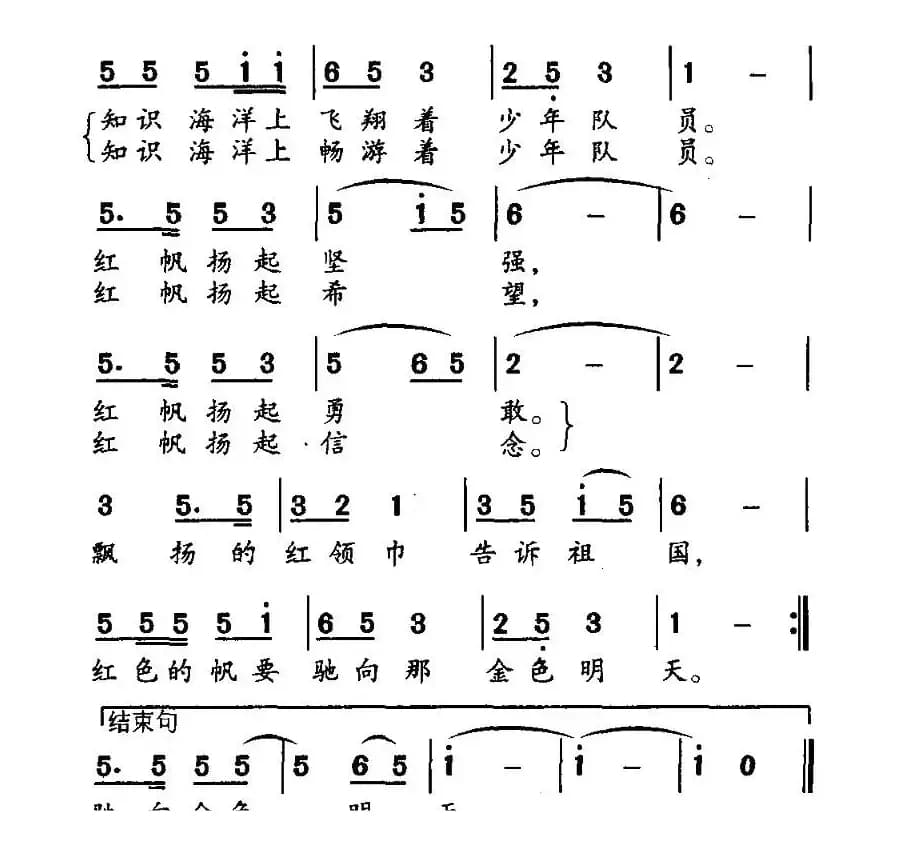 5 5 5 i i | 6 5 3 | 2 5 3 | 1 – |
知识海洋上飞翔着少年队员。
知识海洋上畅游着少年队员。
5. 5 5 3 | 5 i 5 | 6 – | 6 – |
红帆扬起坚强,
红帆扬起希望,
5. 5 5 3 | 5 6 5 | 2 – | 2 – |
红帆扬起勇敢。
红帆扬起信念。
3 5. 5 | 3 2 1 | 3 5 i 5 | 6 – |
飘扬的红领巾告诉祖国,
5 5 5 5 i | 6 5 3 | 2 5 3 | 1 – :||
红色的帆要驰向那金色明天。
结束句
5. 5 5 5 | 5 6 5 | i – | i – | i 0 ||